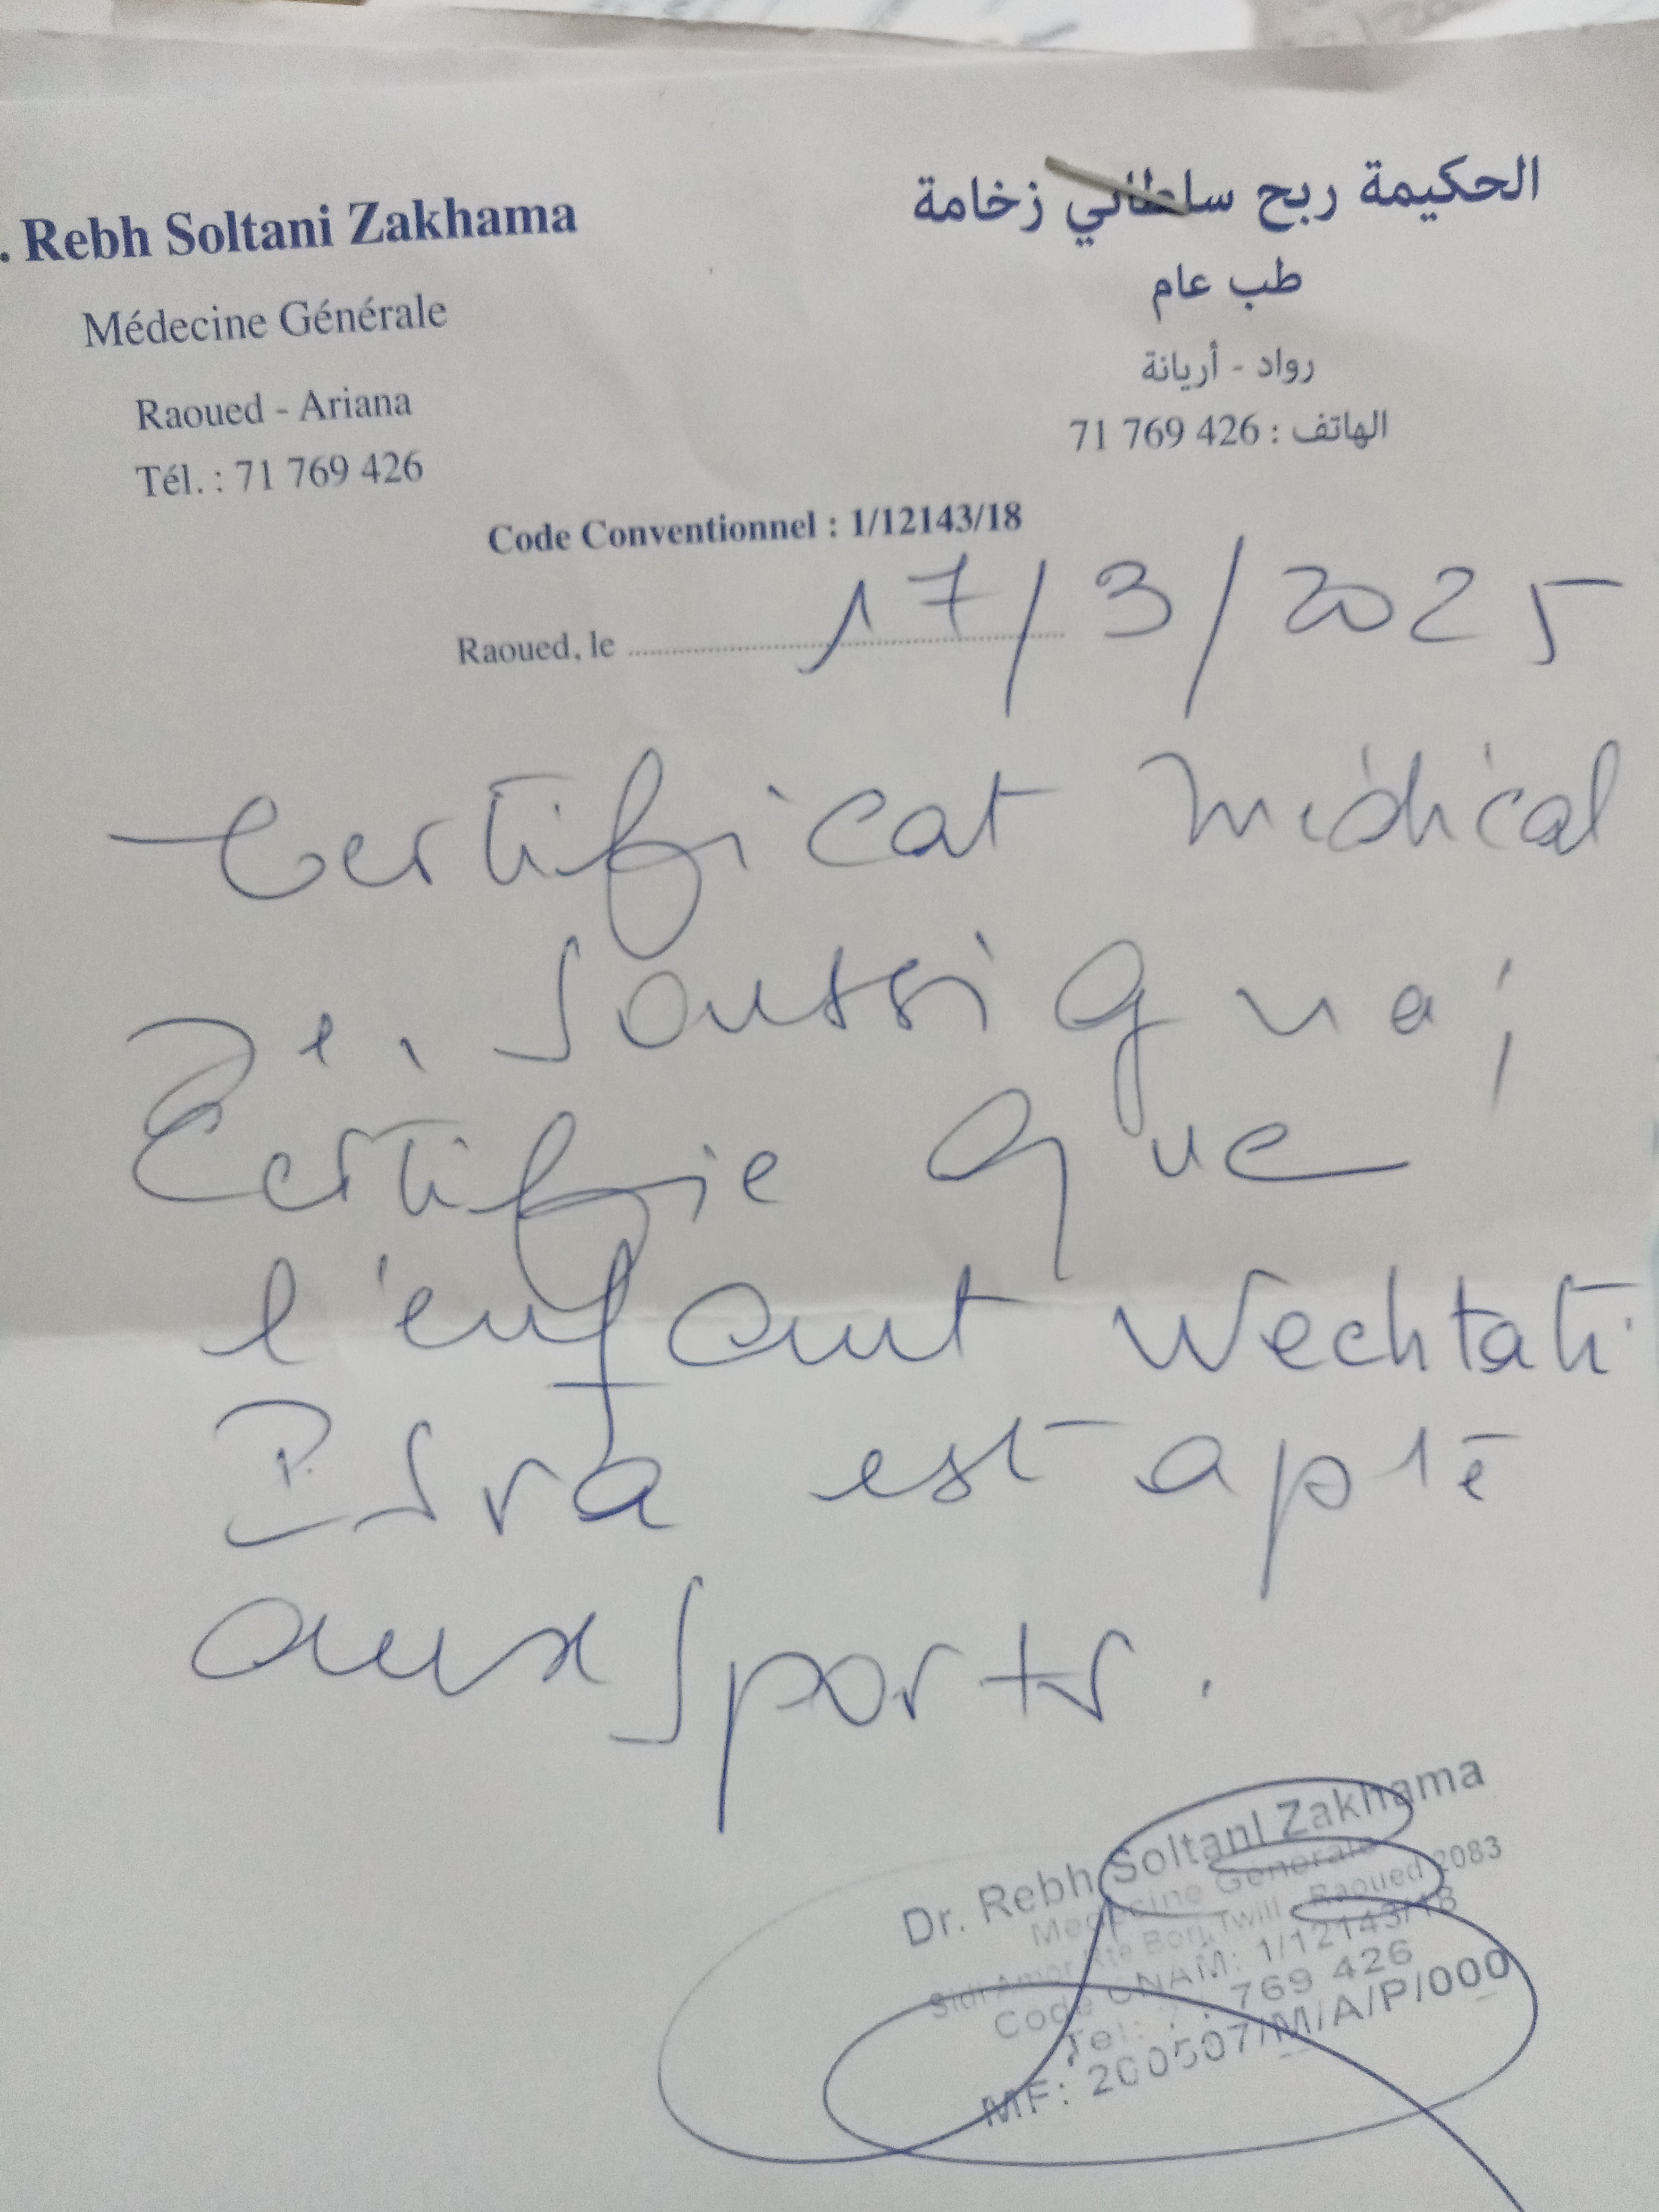 . Rebh Soltani Zakhama
Médecine Générale
Raoued - Ariana
Tél. : 71 769 426
الحكيمة ربح سلطاني زخامة
طب عام
رواد - أريانة
الهاتف : 71 769 426
Code Conventionnel : 1/12143/18
Raoued, le 17/3/2025
Certificat médical
Je, soussigné,
Certifie que
l'enfant Wechtati
Isra est apte
aux sports.
Dr. Rebh Soltani Zakhama
Medecine Generale
Sidi Amor Rte Borj Twill - Raoued 2083
Code CNAM: 1/12143/18
Tel: 71 769 426
MF: 200507/M/A/P/000